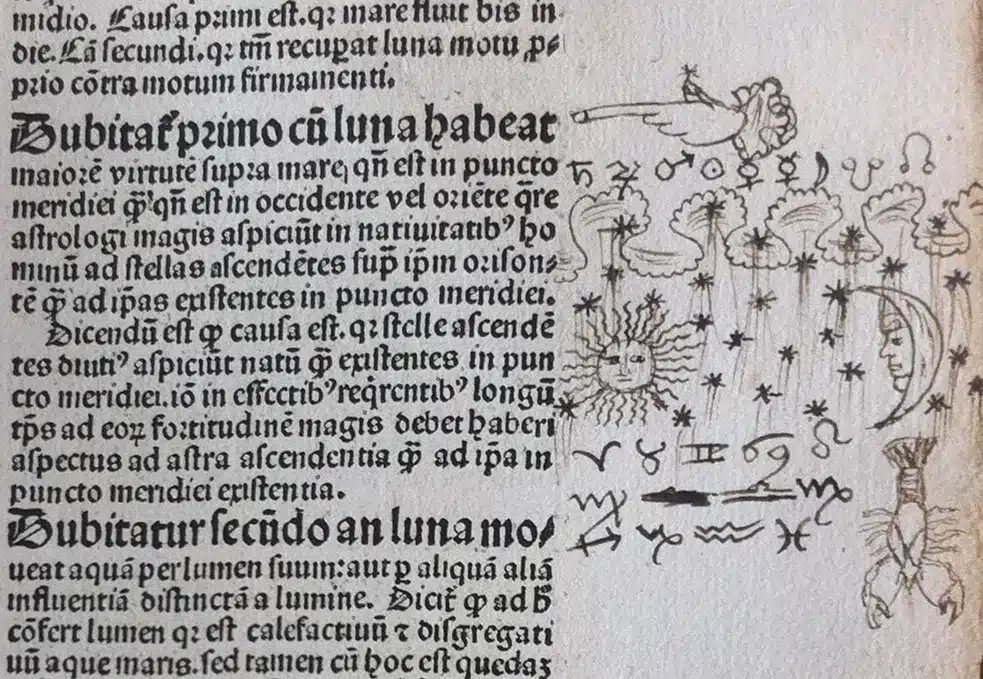 midio. Causa primi est. qꝛ mare fluit bis in
die. Cā secundi. qꝛ tm̄ recuꝑat luna motu ꝓ⸗
prio cōtra motum firmamenti.
Dubitat᷑ primo cū luna habeat
maiorē virtutē supra mare, qn̄ est in puncto
meridiei ꝙ̄ qn̄ est in occidente vel oriēte q̄re
astrologi magis aspiciūt in natiuitatibꝰ ho
minū ad stellas ascendētes sup̄ ip̄m orison⸗
tē q̄ȝ ad ip̄as existentes in puncto meridiei.
Dicendū est ꝙ causa est. qꝛ stelle ascendē
tes diutiꝰ aspiciūt natū ꝙ̄ existentes in pun
cto meridiei. iō in effectibꝰ reqͥrentibꝰ longū
tp̄s ad eoꝝ fortitudinē magis debet haberi
aspectus ad astra ascendentia ꝙ̄ ad ip̄a in
puncto meridiei existentia.
Dubitatur secūdo an luna mo⸗
ueat aquā per lumen suum: aut ꝑ aliquā aliā
influentiā distinctā a lumine. Dicit᷑ ꝙ ad h̄
cōfert lumen qꝛ est calefactiuū ⁊ disgregati
uū aque maris. sed tamen cū hoc est quedaȝ
♄ ♃ ♂ ☉ ♀ ☿ ☽ ☋ ☊
♈ ♉ ♊ ♋ ♌
♍ ♎ ♏
♐ ♑ ♒ ♓